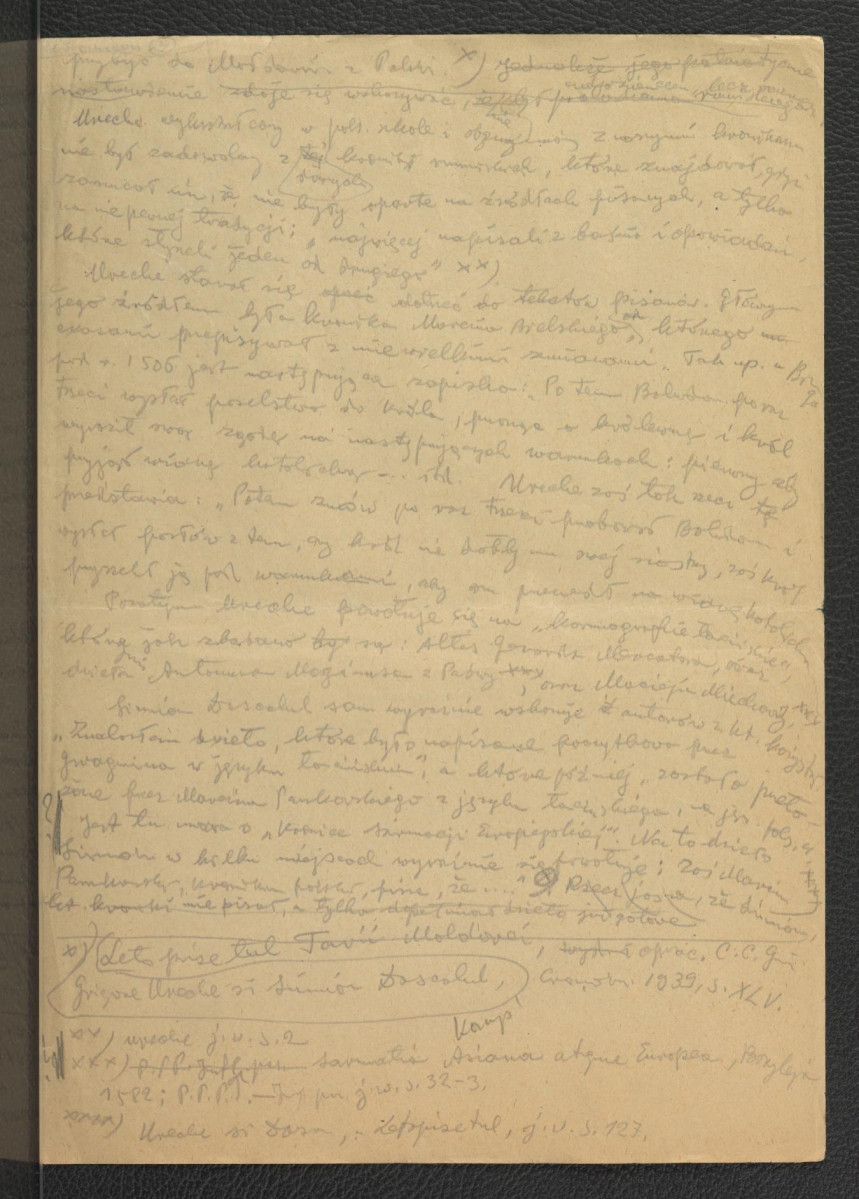 przybyć do Mołdawii z Polski. x) jednakże jego
zdaje się wskazywać, że był
Ureche wykształcony w pols. szkole i z naszymi kronikami
nie był zadowolony z kronik rumuńskich, które znajdował, gdyż
dawnych
zarzucał im, że nie były oparte na źródłach pisanych, a tylko
na niepewnej tradycji; „najwięcej napisali z baśni i opowiadań,
które słyszeli jeden od drugiego" xx)
Ureche starał się oprzeć dotrzeć do tekstów pisanych. Głównym
jego źródłem była kronika Marcina Bielskiego, którego
czasami przepisywał z niewielkimi zmianami. Tak np. u
pod r. 1506 jest następująca zapiska: „Potem Bohdan po raz
trzeci wysłał poselstwo do króla, prosząc o królewnę i król
wyraził swą zgodę na następujących warunkach: pierwszy aby
przyjął wiarę katolicką ... itd. Ureche zaś tak rzecz tę
przedstawia: „Potem znów po raz trzeci próbował Bohdan i
wysłał posłów z tem, czy król nie dałby mu swej siostry, zaś król
przyrzekł ją pod warunkami, aby on przeszedł na wiarę katolicką
Pozatym Ureche powołuje się na „kosmografie łacińskie",
którą jak zbadano są: Atlas Gerarda Mercatora, oraz
dzieła Antoniusa Maginusa z Padwy xxx, oraz Macieja Miechowity
Simion Dascalul sam wyraźnie wskazuje autorów z kt. korzystał
„Znalazłem dzieło, które było napisane początkowo przez
Gwagnina w języku łacińskim", a które później „zostało przeło-
żone przez Marcina Paszkowskiego z języka łacińskiego, na jęz. pols.
Jest tu mowa o „Kronice Sarmacji Europejskiej". Na to dzieło
Simion w kilku miejscach wyraźnie się powołuje; zaś Marcin
Paszkowski, kronikarz polski, pisze, że ...." Rzecz jasna, że Simion,
kt. kroniki nie pisał, a tylko dopełniał dzieło gotowe
x) Letopisetul Tarii Moldovei, wydał oprac. C. C. Giu
Grigore Ureche si Simion Dascalul, Craiova 1939, s. XLV.
xx) Ureche j.w. s. 2
xxx) Sarmatia Asiana atque Europea, Bazyleja
1582; P.P.P. j.w. s. 32-3.
xxxx) Ureche si Dasca, „Letopisetul, j.w. s. 127.